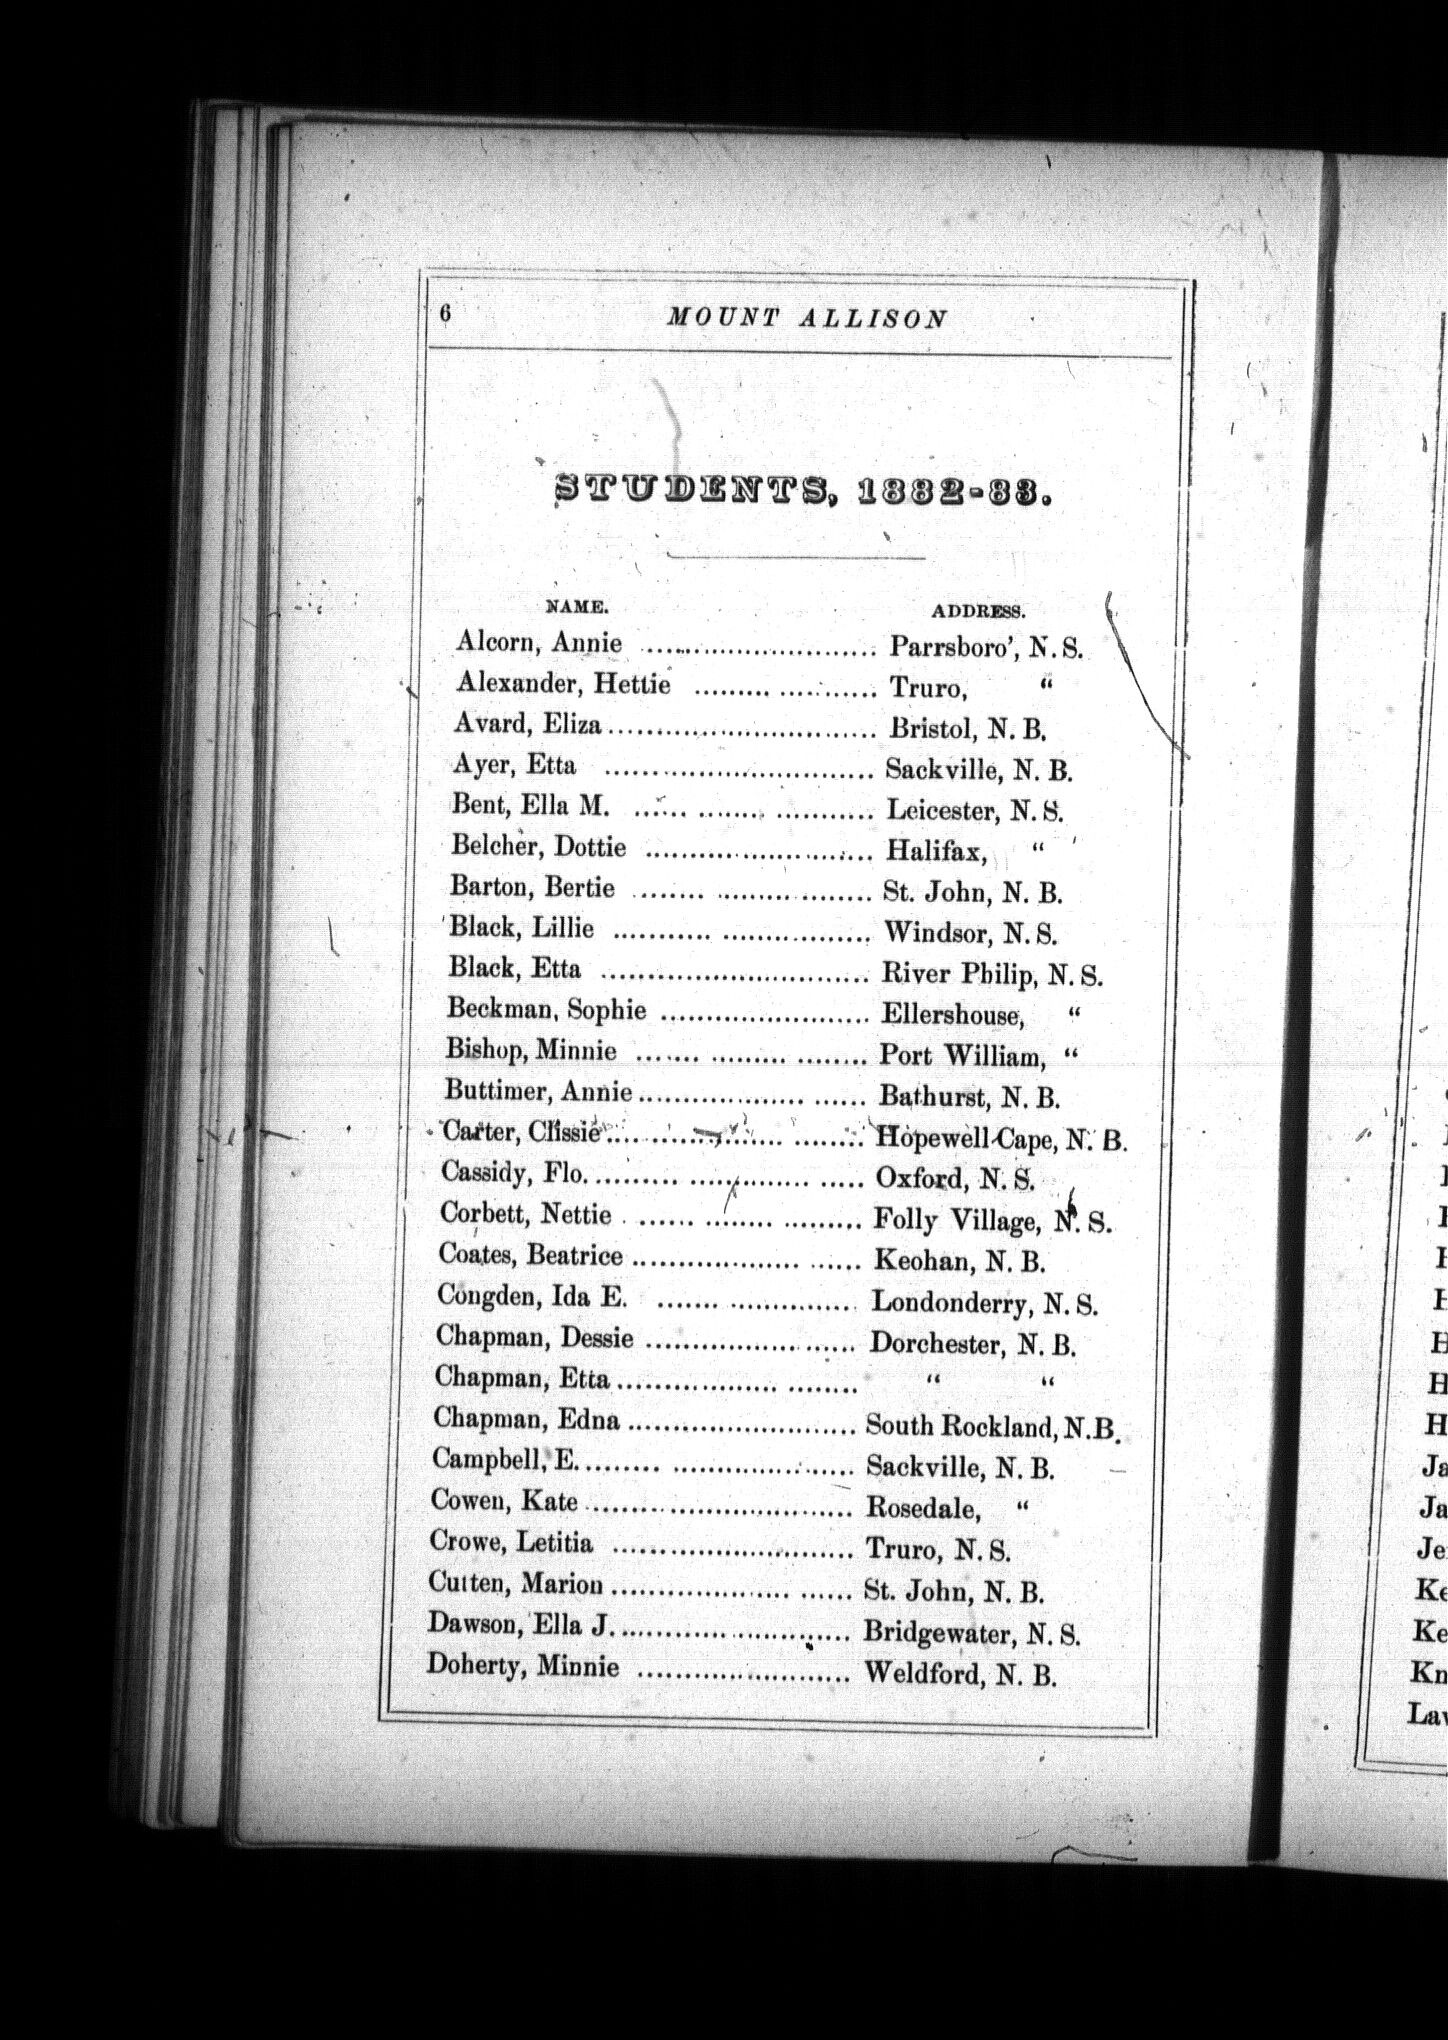 6 MOUNT ALLISON
STUDENTS, 1882-83.
NAME. ADDRESS.
Alcorn, Annie ........................ Parrsboro', N. S.
Alexander, Hettie ........................ Truro, “
Avard, Eliza ........................ Bristol, N. B.
Ayer, Etta ........................ Sackville, N. B.
Bent, Ella M. ........................ Leicester, N. S.
Belcher, Dottie ........................ Halifax, “
Barton, Bertie ........................ St. John, N. B.
Black, Lillie ........................ Windsor, N. S.
Black, Etta ........................ River Philip, N. S.
Beckman, Sophie ........................ Ellershouse, “
Bishop, Minnie ........................ Port William, “
Buttimer, Annie ........................ Bathurst, N. B.
Carter, Clissie ........................ Hopewell Cape, N. B.
Cassidy, Flo. ........................ Oxford, N. S.
Corbett, Nettie ........................ Folly Village, N. S.
Coates, Beatrice ........................ Keohan, N. B.
Congden, Ida E. ........................ Londonderry, N. S.
Chapman, Dessie ........................ Dorchester, N. B.
Chapman, Etta ........................ “ “
Chapman, Edna ........................ South Rockland, N.B.
Campbell, E. ........................ Sackville, N. B.
Cowen, Kate ........................ Rosedale, “
Crowe, Letitia ........................ Truro, N. S.
Cutten, Marion ........................ St. John, N. B.
Dawson, Ella J. ........................ Bridgewater, N. S.
Doherty, Minnie ........................ Weldford, N. B.